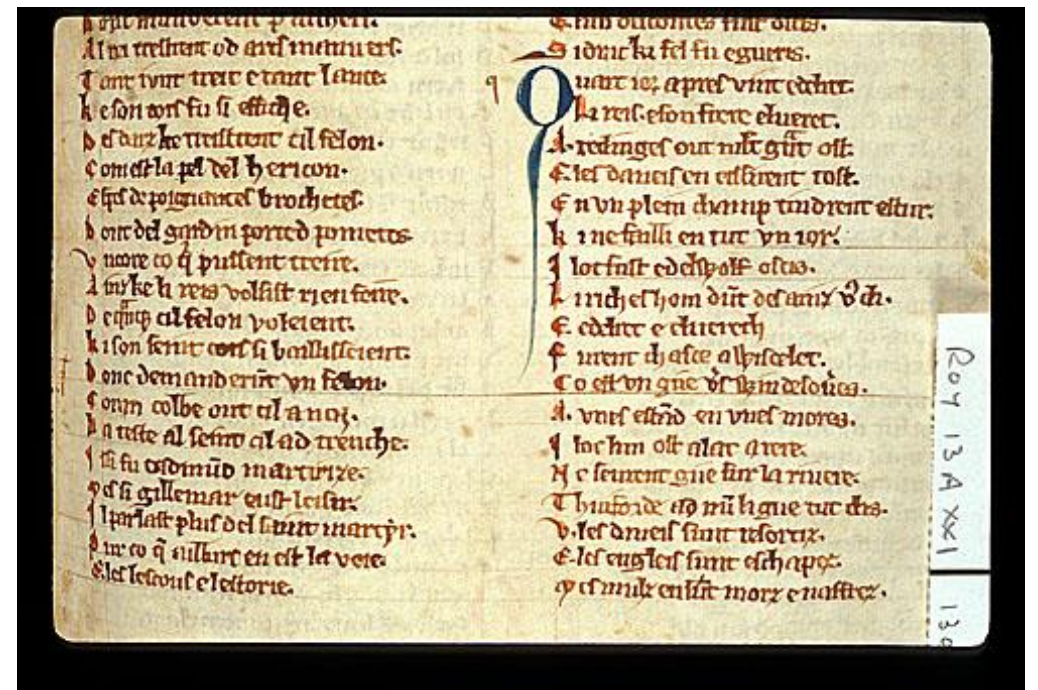 A lui trestrent od ars manuers.
T ant iunt treit e tant lance.
k e son cors fu si estiche.
D es darz ke treistrent cil felon.
C om est la pel del hericon.
espes de poignantes brochetes.
D ont del gardin ported pometes.
V ncore co q̄ pussent creire.
A inz ke li reis volsist rien feire.
D e cil felon voleient.
k i son seint cors si baillisseient.
D onc demanderūt vn felon.
C oran colbe out cil a nō.
L a teste al seint cil ad trenche.
I ssi fu edmūd martirize.
M es si gillemar eust leisir.
I l parlast plus del saint martyr.
P ur co q̄ aillurs en est la veie.
E les lescuns e lestorie.
S idric ki fel fu e guers.
Q uart ior apres vint edelret.
L i reis. e son frere elueret.
A. redinges out mlt grāt ost.
E. les daneis en eissirent tost.
E n vn plein champ tindrent estur.
k i ne failli en tut vn ior.
I loc fust edelwolf ocis.
L i riches hom dūt
E. edelret e eluered
F urent chasce a Wiscelet.
C o est vn gue
A. vnes estrād en vnes mores.
I loc lur ost alat arere.
N e seurent gue sur la riuere.
T huiforde ad nū li gue tut dis.
V. les daneis sunt resortiz.
E. les engleis sunt eschapez.
M es mulz en sūt morz e naffrez.
Roy 13 A XXI